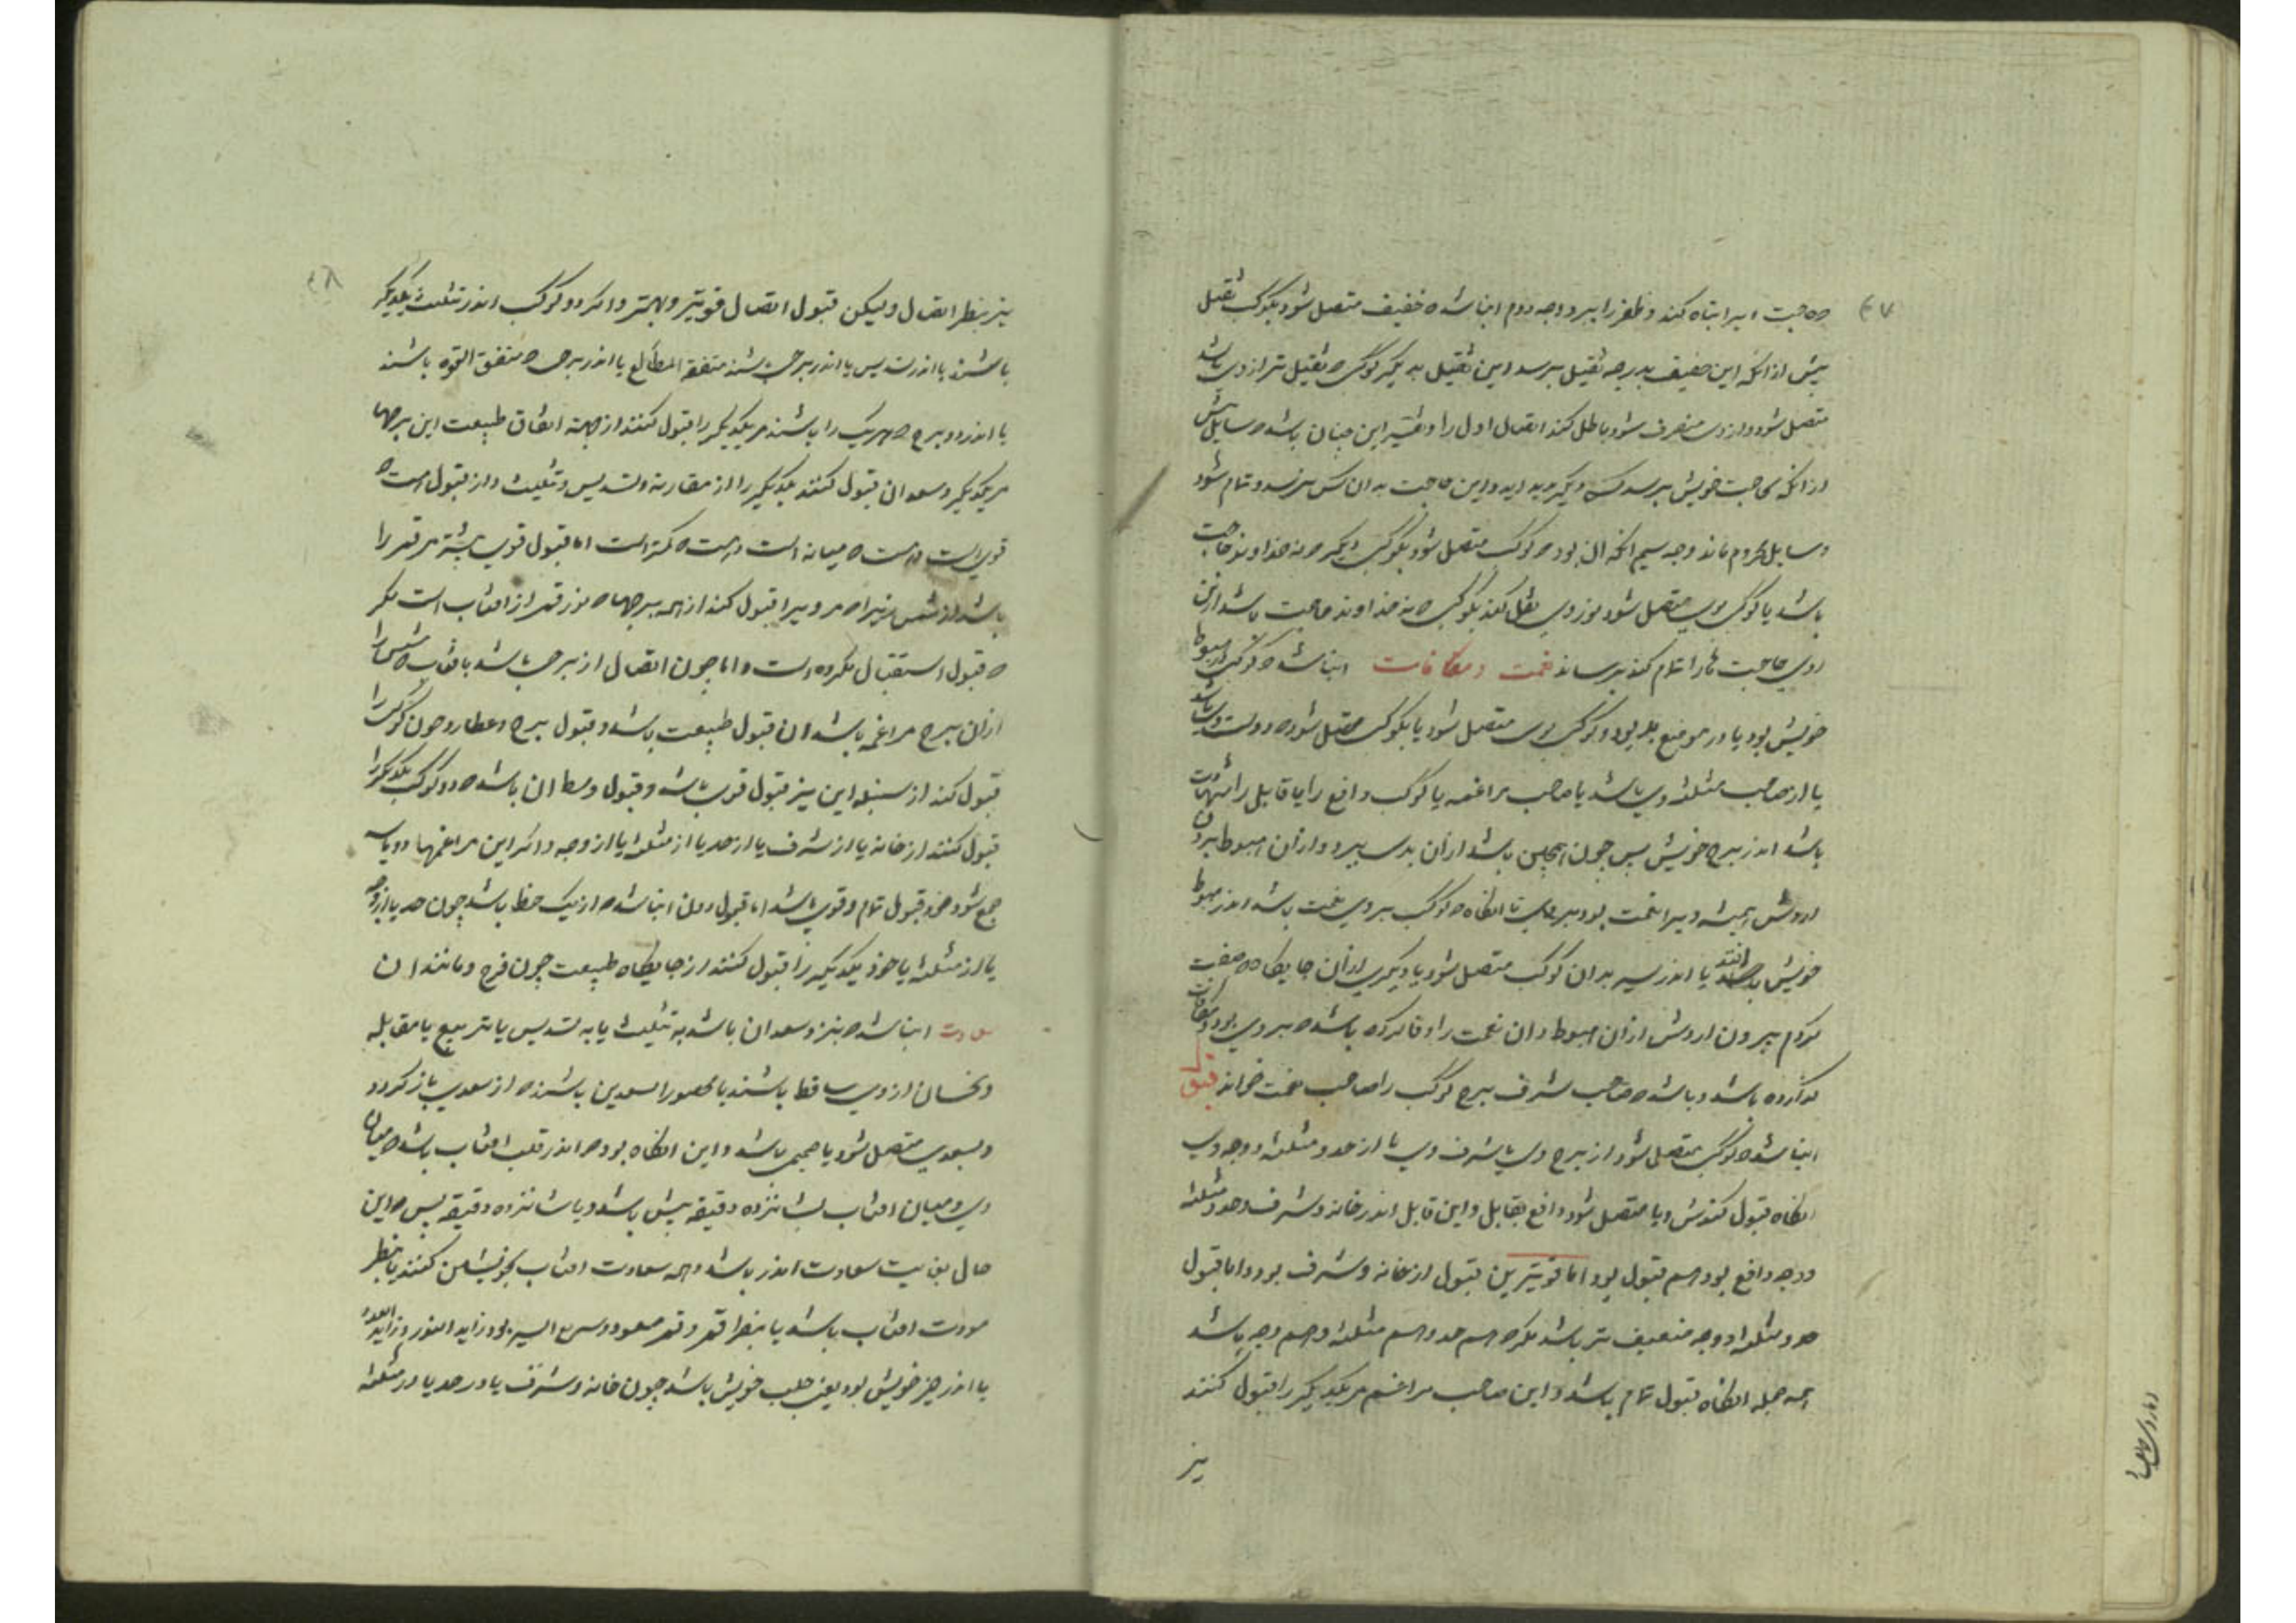 حاجت ویرا تباه کند و ظفر را ببرد و وجه دوم انباشد ه خفیف متصل شود بکوکب ثقیل
پیش از انکه این خفیف بدرجه ثقیل برسد این ثقیل به دیگر کوکب ه ثقیل تر از وی باشد
متصل شود و از وی منصرف شود باطل کند اتصال اول را و تفسیر این چنان باشد ه سایل پیش
از انکه بحاجت خویش برسد کسی دیگر پدید اید و این حاجت به ان کس برسد و تمام شود
و سایل محروم ماند وجه سیم انکه ان بود ه کوکب متصل شود بکوکبی دیگر ه نه خداوند حاجت
باشد یا کوکبی بوی متصل شود نور وی نقل کند بکوکبی ه نه خداوند حاجت باشد
روی حاجت ها را تمام کند برساند نعمت و مکافات انباشد ه کوکبی اندر هبوط
خویش بود یا در موضع بد بود و کوکبی بوی متصل شود یا بکوکب متصل شود ه دوست وی باشد
یا از صاحب مثلثه وی باشد یا صاحب مراغمه یا کوکب دافع را یا قابل را شهادت
باشد اندر برج خویش پس چون اینچنین باشد از ان بدی ببرد و از ان هبوط بیرون
اردش همیشه ویرا نعمت بود بر وی تا انکاه ه کوکب بر وی نعمت باشد اندر هبوط
خویش افتد یا اندر سیر بدان کوکب متصل شود یا دیگری از ان جایگاه ه صفت
کردم بیرون اردش از ان هبوط و ان نعمت را وفا کرده باشد ه بر وی بود و مکافات
کرده باشد و باشد ه صاحب شرف برج کوکب را صاحب نعمت خوانند قبول
انباشد ه کوکبی متصل شود از برج وی یا شرف وی یا از حد و مثلثه و وجه وی
انکاه قبول کندش و یا متصل شود دافع بقابل و این قابل اندر خانه و شرف و حد و مثلثه
و وجه دافع بود هم قبول بود اما قویترین قبول از خانه و شرف بود و اما قبول
حد و مثلثه و وجه ضعیف تر باشد مگر ه هم حد و هم مثلثه و هم وجه باشد
همه جمله انکاه قبول تمام باشد و این صاحب مراغم مر یکدیگر را قبول کنند
نیز
نیز بنظر اتصال ولیکن قبول اتصال قویتر و بهتر و اگر دو کوکب اندر تثلیث یکدیگر
باشند یا اندر تسدیس یا اندر برجی باشند متفقة المطالع یا اندر برجی ه متفق القوه باشند
یا اندر دو برج ه هر یک را باشند مر یکدیگر را قبول کنند از جهة اتفاق طبیعت این برجها
مر یکدیگر و سعدان قبول کنند یکدیگر را از مقارنه و تسدیس و تثلیث و از قبول است ه
قوی است و هست ه میانه است و هست ه کمتر است اما قبول قوی بیشتر مر قمر را
باشد از شمس زیرا ه مر ویرا قبول کند از همه برجها ه نور قمر از افتاب است مگر
ه قبول استقبال مکروه است و اما چون اتصال از برجی باشد بافتاب ه شمس را
از ان برج مراغمه باشد ان قبول طبیعت باشد و قبول برج و عطارد چون کوکب را
قبول کند از سنبله این نیز قبول قوی باشد و قبول وسط ان باشد ه دو کوکب یکدیگر را
قبول کنند از خانه یا از شرف یا از حد یا از مثلثه یا از وجه و اگر این مراغمها دو یا سه
جمع شود خود قبول تمام و قوی باشد اما قبول دون انباشد ه از یک حظ باشد چون حد یا از وجه
یا از مثلثه یا خود یکدیگر را قبول کنند از جایگاه طبیعت چون فرح و مانند ان
سعادت انباشد ه بنزد سعدان باشد به تثلیث یا به تسدیس یا تربیع یا مقابله
و نحسان از وی ساقط باشند یا محصور السعدین باشند ه از سعدی باز گردد
و بسعدی متصل شود یا صمیمی باشد و این انکاه بود ه اندر قلب افتاب باشد ه میان
وی و میان افتاب بشانزده دقیقه پیش باشد و یا شانزده دقیقه پس ه این
حال بغایت سعادت اندر باشد و همه سعادت افتاب بخویشتن کنند یا بنظر
مودت افتاب باشد یا بنظر قمر و قمر مسعود و سریع السیر بود زاید النور و زاید العدد
یا اندر حیز خویش بود یعنی حلب خویش باشد چون خانه و شرف یا در حد یا در مثلثه